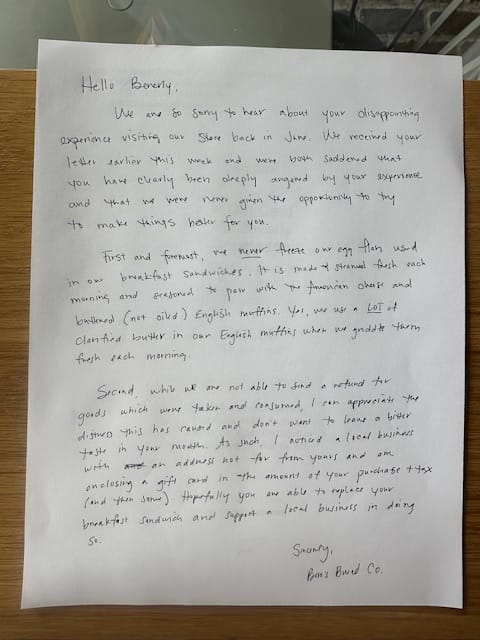 Hello Beverly,
We are so sorry to hear about your disappointing
experience visiting our store back in June. We received your
letter earlier this week and were both saddened that
you have clearly been deeply angered by your experience
and that we were never given the opportunity to try
to make things better for you.
First and foremost, we never freeze our egg flan used
in our breakfast sandwiches. It is made & steamed fresh each
morning and seasoned to pair with the American cheese and
buttered (not oiled) English muffins. Yes, we use a LOT of
clarified butter in our English muffins when we griddle them
fresh each morning.
Second, while we are not able to find a refund for
goods which were taken and consumed, I can appreciate the
distress this has caused and don't want to leave a bitter
taste in your mouth. As such, I noticed a local business
with an address not far from yours and am
enclosing a gift card in the amount of your purchase + tax
(and then some). Hopefully you are able to replace your
breakfast sandwich and support a local business in doing
so.
Sincerely,
Bread Co.